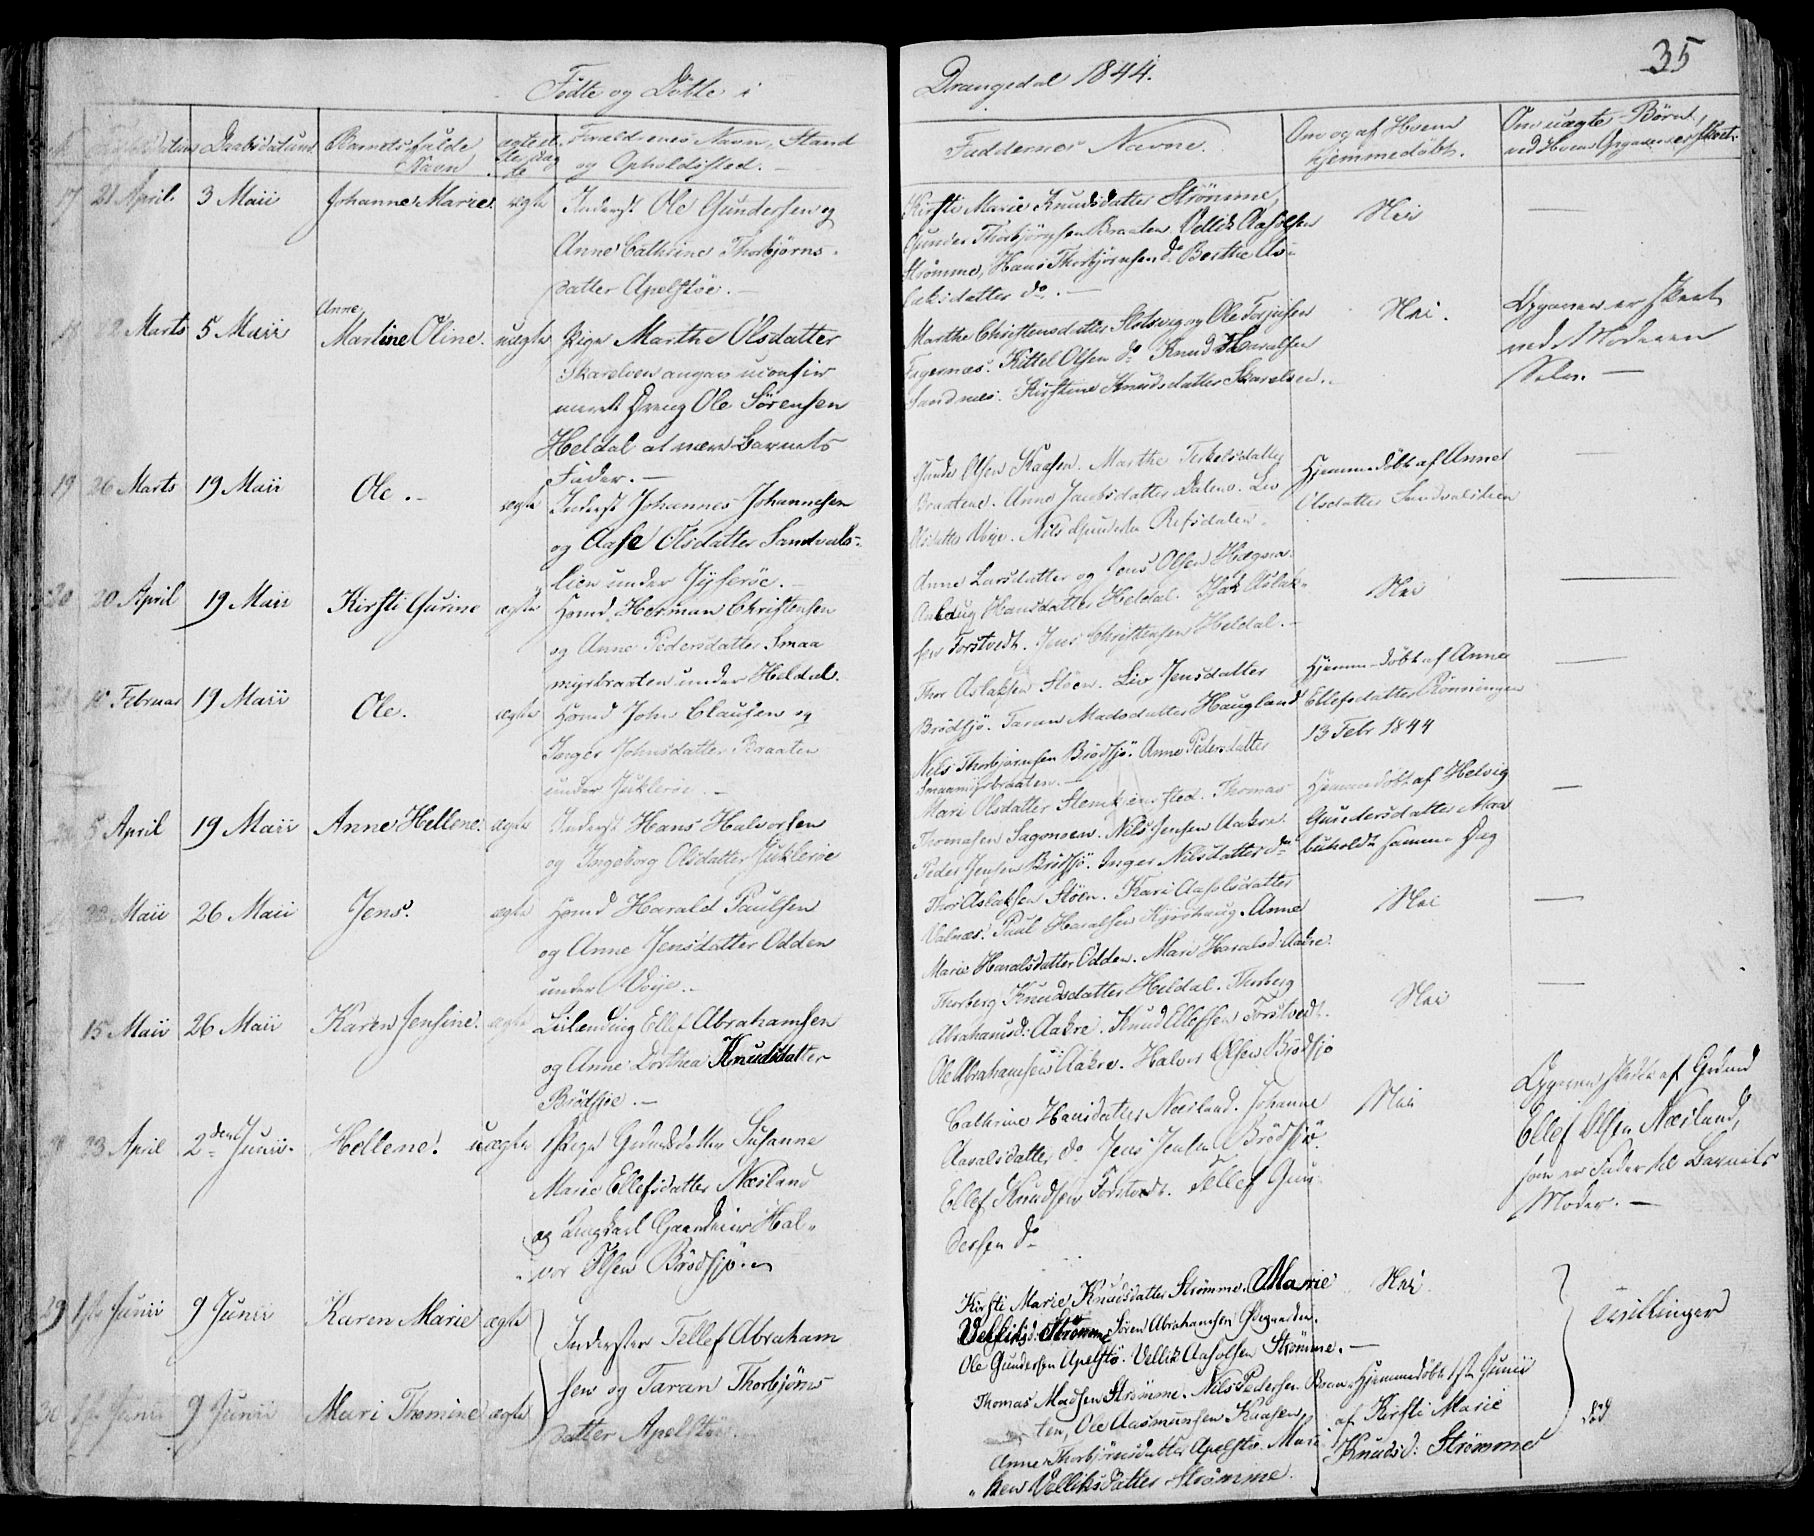 35
Födte og Döbte i Drangedal 1844.
Daabsdatum Barnets fulde Navn Forældrenes Navn, Stand og Opholdssted. Faddernes Navne. Om og af Hvem hjemmedöbt. Om uægte Börn, ved Hvem Opgaven er skeet.
17 21 April. 3 Maii Johanne Marie. ægte Inderst Ole Gundersen og
Anne Cathrine Thorbjørns-
datter Apelstöe. —
Kirsti Marie Knudsdatter Strömme,
Gunder Thorbjörnsen Braaten Vellik Aasolfsen
Strömme, Hans Thorbjørnsen do Berthe As-
laksdatter do. —
Nei
—
Marts 5 Maii Anne
Martine Oline. uægte Pige Marthe Olsdatter
Skarelven angav uconfir-
meret Dreng Ole Sörensen
Heldal at være Barnets
Fader. —
Marthe Christensdatter Slotsvig og Ole Torjusen
Fagernæs. Kittel Olsen do Knud Haralsen
Sandnæs. Kirstine Knudsdatter Skarelven.
Nei.
Opgaven er skeet
ved Moderen
Selv. —
19 26 Marts 19 Maii Ole. — ægte Inderst Johannes Johannesen
og Aase Olsdatter Sandvals-
lien under
Gunder Olsen Kaasen. Marthe Terkelsdatter
Anne Jacobsdatter Dalene. Liv
Olsdatter Voje. Nils Gundersen Refsdalen.
Hjemmedöbt af Anne
Olsdatter Sandvaslien
—
20 20 April 19 Maii Kirsti Gurine ægte Huusmd Herman Christensen
og Anne Pedersdatter Smaa
myrbraaten under Heldal.
Anne Larsdatter og Jens Olsen
Anlaug Hansdatter Heldal. Isak Aslak-
sen Torstvedt. Jens Christensen Heldal. —
Nei
—
Februar 19 Maii Ole. ægte Huusmd John Clausen og
Inger Johnsdatter Braaten
under Jukleröe. —
Thor Aslaksen Stöen. Liv Jensdatter
Brödsjö. Taran Madsdatter Haugland
Nils Thorbjørnsen Brödsjö. Anne Pedersdatter
Smaamyrbraaten. —
Hjemmedöbt af Anne
Ellefsdatter Rönningen
13 Febr 1844
—
5 April 19 Maii Anne Hellene. ægte Inderst Hans Halvorsen
og Ingeborg Olsdatter Juklerøe
Mari Olsdatter Thomas
Thomasen Sagmoen. Nils Jensen Aakre.
Peder Jensen Brödsjö. Inger Nilsdatter do
Hjemmedöbt af Helvig
Gundersdatter Moe
samme Dag
—
Maii 26 Maii Jens. ægte Huusmd Harald Paulsen
og Anne Jensdatter Odden
under Voje. —
Thor Aslaksen Stöen. Kari Aasolsdatter
Valnæs. Paul Haralsen Kjørshaug. Anne
Marie Haralsdatter Odden. Mari Haralsd. Aakre.
Nei
—
15 Maii 26 Maii Karen Jensine. ægte Leilending Ellef Abrahamsen
og Anne Dorthea Knudsdatter
Brödsjøe. —
Thorberg Knudsdatter Heldal. Thorberg
Abrahamsd: Aakre. Knud Ellefsen Torstvedt.
Ole Abrahamsen Aakre. Halvor Olsen Brödsjö
Nei
—
23 April 2den Junii. Hellene. uægte Pige
Marie Ellefsdatter Næsland
og Halvor Olsen Brödsjö.
Cathrine Hansdatter Næsland. Johanne
Aasolsdatter do Jens Jensen Brödsjö.
Ellef Knudsen Torstvedt. Tellef Gun-
dersen do
Nei
Opgaven skedte af
Ellef Olsen Næsland,
som er Fader til Barnets
Moder. —
29 1ste Junii 9 Junii Karen Marie ægte
Inderster Tellef Abraham
sen og Taran Thorbjørns
datter Apelstöe.
Kirsti Marie Knudsdatter Strömme. Marie
Velliksd: Strömme Sören Abrahamsen
Ole Gundersen Apelstö. Vellik Aasolsen Strömme. —
Nei.
Tvillinger
30 1ste Junii 9 Junii Mari Thomine ægte
Thomas Madsen Strömme. Nils Pedersen Braa-
ten, Ole Aasmunsen Kaasen,
Anne Thorbjörnsdatter Apelstö. Mari
Velliksdatter Strömme.
Hjemmedöbt 1ste Junii
af Kirsti Marie
Knudsd: Strömme
död